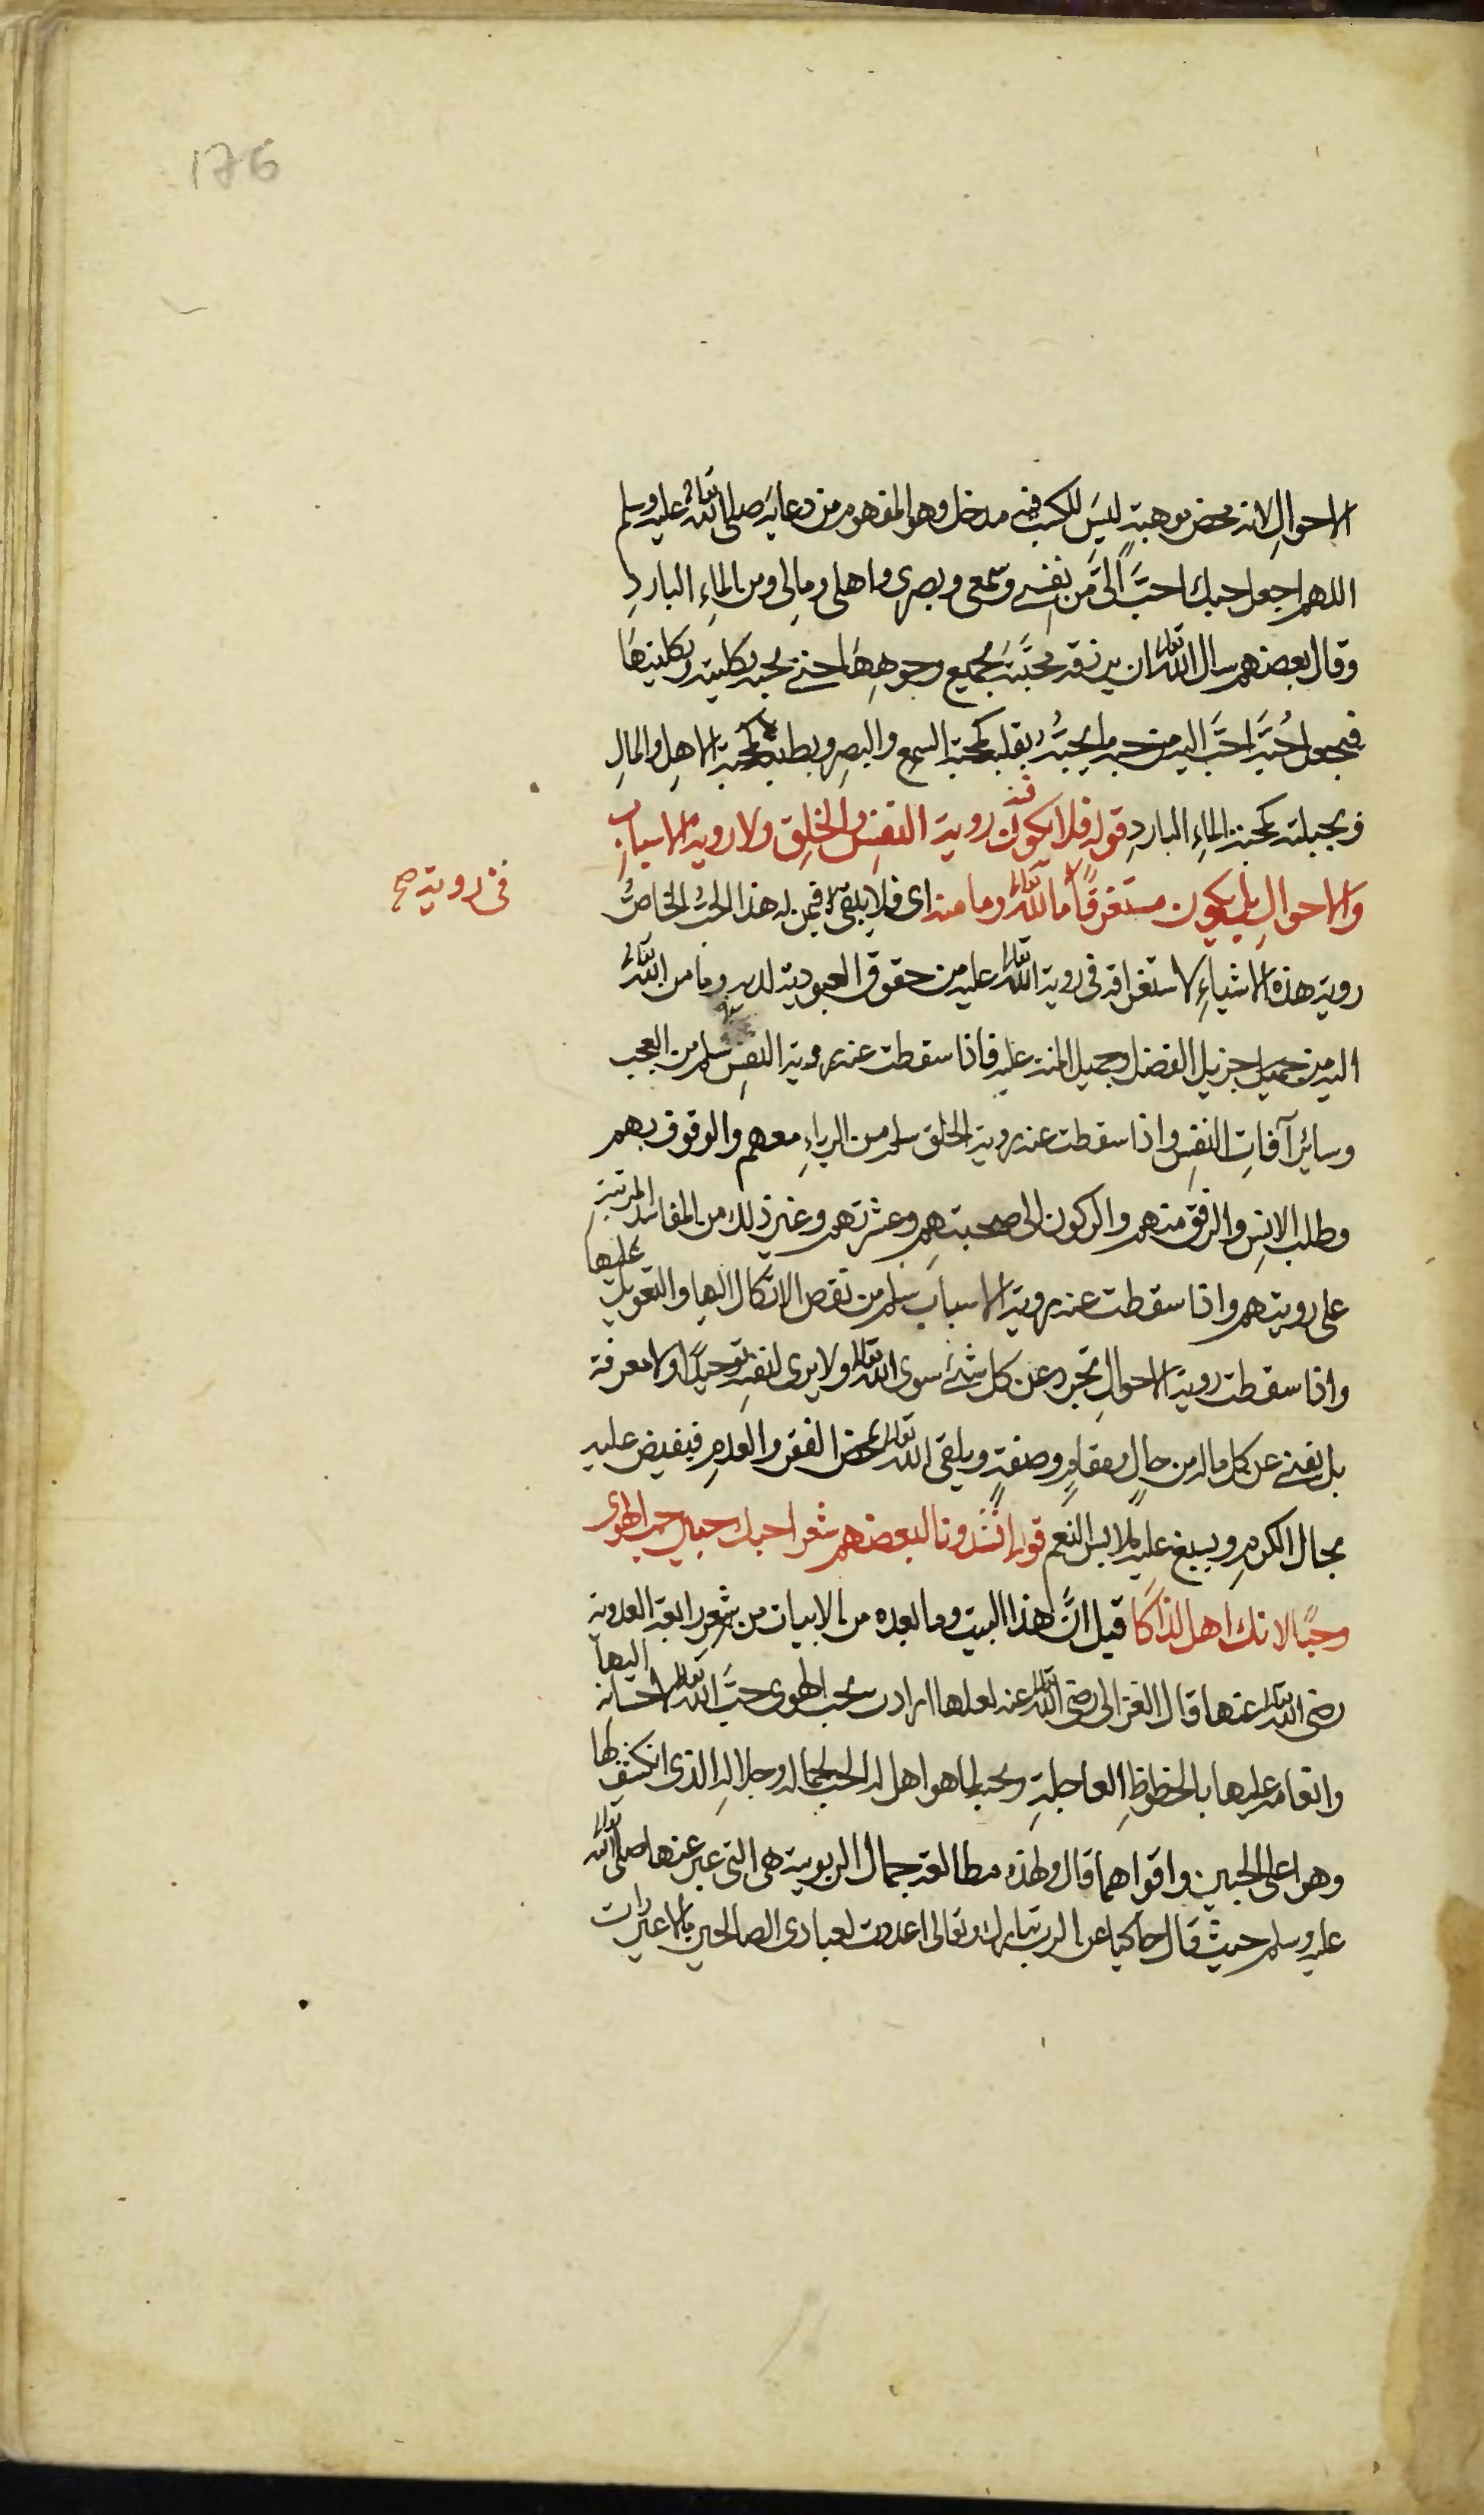 176
الاحوالِ لانه محض موهبةٍ ليسَ للكسب فيه مدخل وهو المفهوم من دعايه صلى الله تعالى عليه وسلم
اللهم اجعل حبك احبَّ الىَّ من نفسى وسمعى وبصرى واهلى ومالى ومن الماءِ الباردِ
وقال بعضهم سال الله تعالى ان يرزقه محبَّته بجميع وجوهِهَا حتى يحبه بكليته وبكليتها
فيجعل حُبَّه احبَّ اليه من حبه ما يحبُّه بقلبه كمحبة السمع والبصر وبطبعه كمحبة الاهلِ والمالِ
وبجبلته كمحبته الماءِ الباردِ قوله فلا يكون فيه روية النفسِ والخلقِ ولا روية الاسبابِ
والاحوالِ بل يكون مستغرقًا ما لله تعالى وما منه اى فلا يبقى فيمن له هذا الحبُّ الخاصُّ
فى روية صح
روية هذه الاشياءِ لاستغراقه فى روية ما لله تعالى عليه من حقوق العبودية لديه وما من الله تعالى
اليه من جزيل الفضل وجميل المنة عليه فاذا سقطت عنه روية النفسِ سلم من العجب
وسائر آفاتِ النفسِ واذا سقطت عنه روية الخلق سلم من الرياءِ معهم والوقوف بهم
وطلب الانسِ والرفق منهم والركون الى صحبتهم وعشرتهم وغير ذلك من المفاسد المرتبةِ
على رويتهم واذا سقطت عنه روية الاسباب سلم من نقص الاتكال اليها والتعويل عليها
واذا سقطت روية الاحوالِ تجرد عن كل شئ سوى الله تعالى ولا يرى لنفسه توحيدًا ولا معرفة
بل يفنى عن كل ماله من حالٍ ومقامٍ وصفةٍ ويلقى الله تعالى بمحض الفقر والعدمِ فيفيض عليه
بحال الكرمِ ويسبغ عليه ملابس النعم قوله انشدونا لبعضهم شعر احبك حبين حب الهوى
وحبًا لانك اهل لذاكا قيل انَّ هذا البيت وما بعده من الابيات من شعر رابعة العدوية
رضى الله تعالى عنها قال الغزالى رضى الله تعالى عنه لعلها ارادت بحب الهوى حبَّ الله تعالى لاحسانه اليها
وانعامه عليها بالحظوظِ العاجلةِ وبحبه لما هو اهل له الحب لجماله وجلالهِ الذى انكشف لها
وهو اعلى الحبين واقواهما قال ولهذه مطالعة جمال الربوبية هى التى عبر عنها صلى الله تعالى
عليه وسلم حيث قال حاكيا عن الرب تبارك وتعالى اعددت لعبادى الصالحين ما لا عين رات